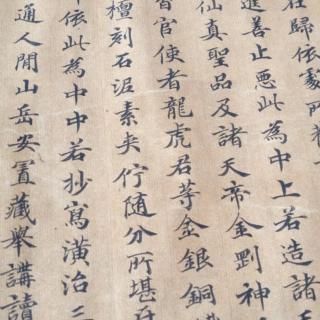 歸依
進善止惡此為中上若造諸
仙真聖品及諸天帝金剛神
官使者龍虎君等金銀銅
檀刻石泥素夾佇隨分所堪
依此為中中若抄寫潢治三
通人閒山岳安置藏舉講讀